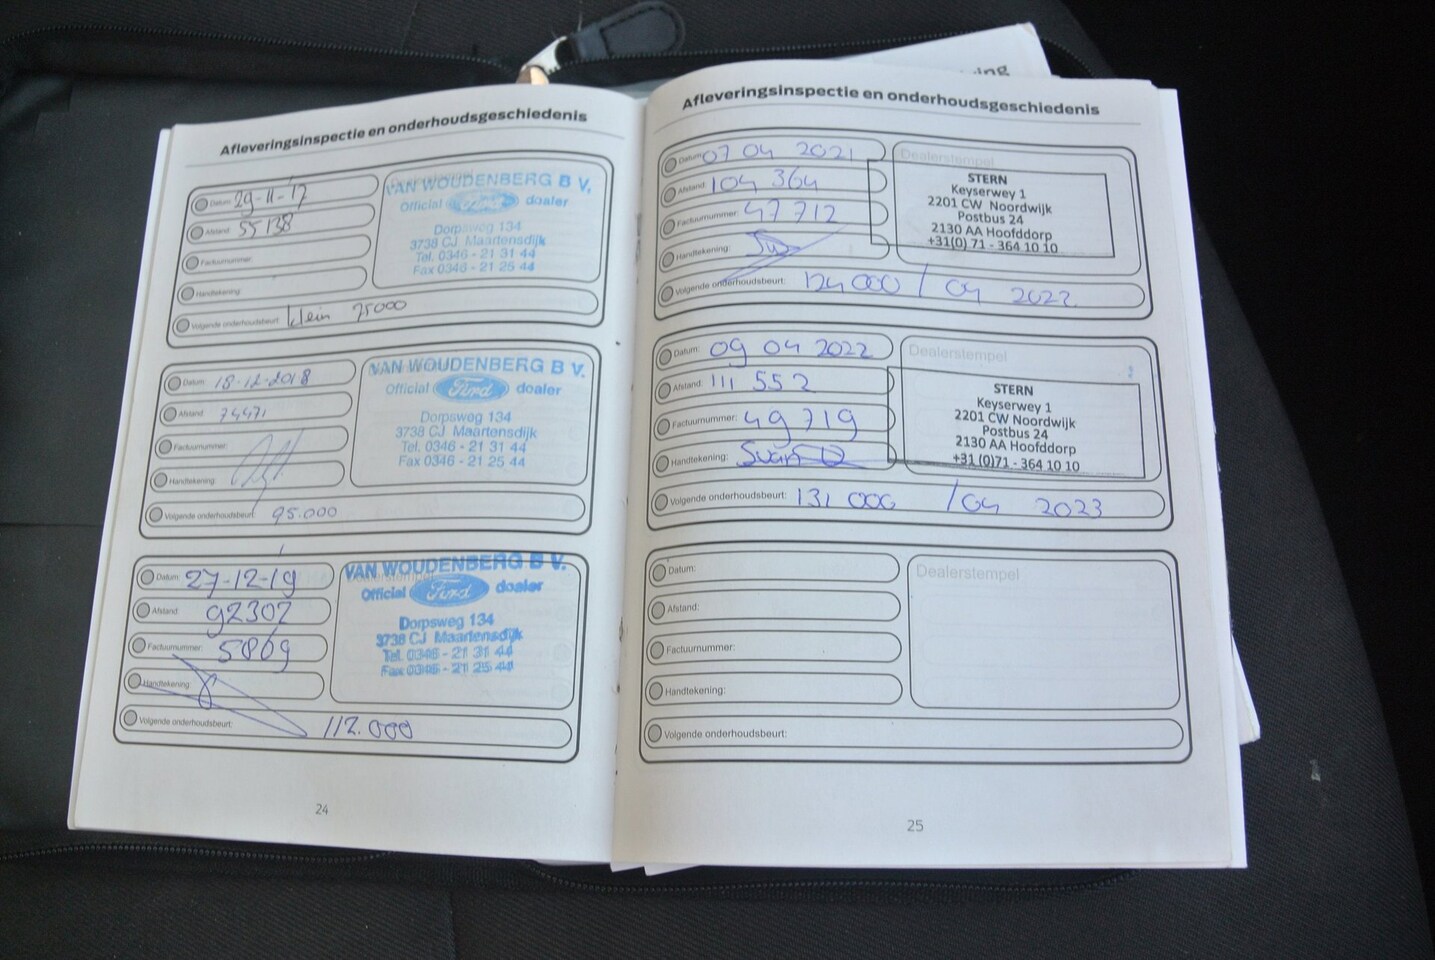 Afleveringsinspectie en onderhoudsgeschiedenis
Datum: 29-11-'17
Afstand: 55138
Factuurnummer:
Handtekening:
Volgende onderhoudsbeurt: klein 75000
VAN WOUDENBERG B V.
Official Ford dealer
Dorpsweg 134
3738 CJ Maartensdijk
Tel. 0346 - 21 31 44
Fax 0346 - 21 25 44
Datum: 18-12-2018
Afstand: 74471
Factuurnummer:
Handtekening:
Volgende onderhoudsbeurt: 95.000
VAN WOUDENBERG B V.
Official Ford dealer
Dorpsweg 134
3738 CJ Maartensdijk
Tel. 0346 - 21 31 44
Fax 0346 - 21 25 44
Datum: 27-12-19
Afstand: 92302
Factuurnummer: 5869
Handtekening:
Volgende onderhoudsbeurt: 112.000
VAN WOUDENBERG B V.
Official Ford dealer
Dorpsweg 134
3738 CJ Maartensdijk
Tel. 0346 - 21 31 44
Fax 0346 - 21 25 44
24
Afleveringsinspectie en onderhoudsgeschiedenis
Datum: 07 04 2021
Afstand: 104 364
Factuurnummer: 47 712
Handtekening:
Volgende onderhoudsbeurt: 124 000 / 04 2022
Dealerstempel
STERN
Keyserwey 1
2201 CW Noordwijk
Postbus 24
2130 AA Hoofddorp
+31(0) 71 - 364 10 10
Datum: 09 04 2022
Afstand: 111 552
Factuurnummer: 49 719
Handtekening:
Volgende onderhoudsbeurt: 131 000 / 04 2023
Dealerstempel
STERN
Keyserwey 1
2201 CW Noordwijk
Postbus 24
2130 AA Hoofddorp
+31 (0)71 - 364 10 10
Datum:
Afstand:
Factuurnummer:
Handtekening:
Volgende onderhoudsbeurt:
Dealerstempel
25